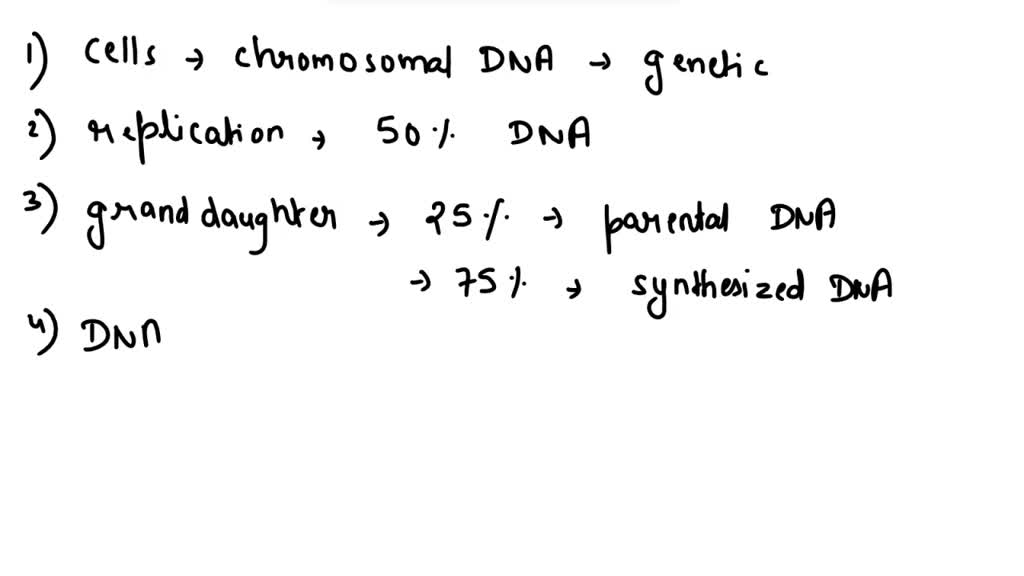 1) cells → chromosomal DNA → genetic
2) replication → 50% DNA
3) granddaughter → 25% → parental DNA
→ 75% → synthesized DNA
4) DNA